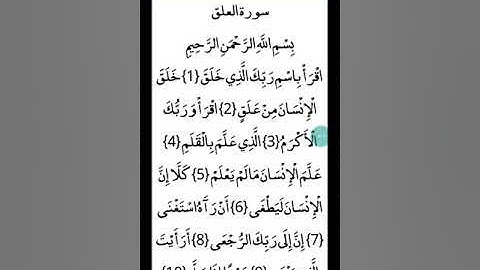 سورة العلق
بِسْمِ اللَّهِ الرَّحْمَنِ الرَّحِيمِ
اقْرَأْ بِاسْمِ رَبِّكَ الَّذِي خَلَقَ {1} خَلَقَ
الْإِنْسَانَ مِنْ عَلَقٍ {2} اقْرَأْ وَرَبُّكَ
الْأَكْرَمُ {3} الَّذِي عَلَّمَ بِالْقَلَمِ {4}
عَلَّمَ الْإِنْسَانَ مَا لَمْ يَعْلَمْ {5} كَلَّا إِنَّ
الْإِنْسَانَ لَيَطْغَى {6} أَنْ رَآهُ اسْتَغْنَى
{7} إِنَّ إِلَى رَبِّكَ الرُّجْعَى {8} أَرَأَيْتَ